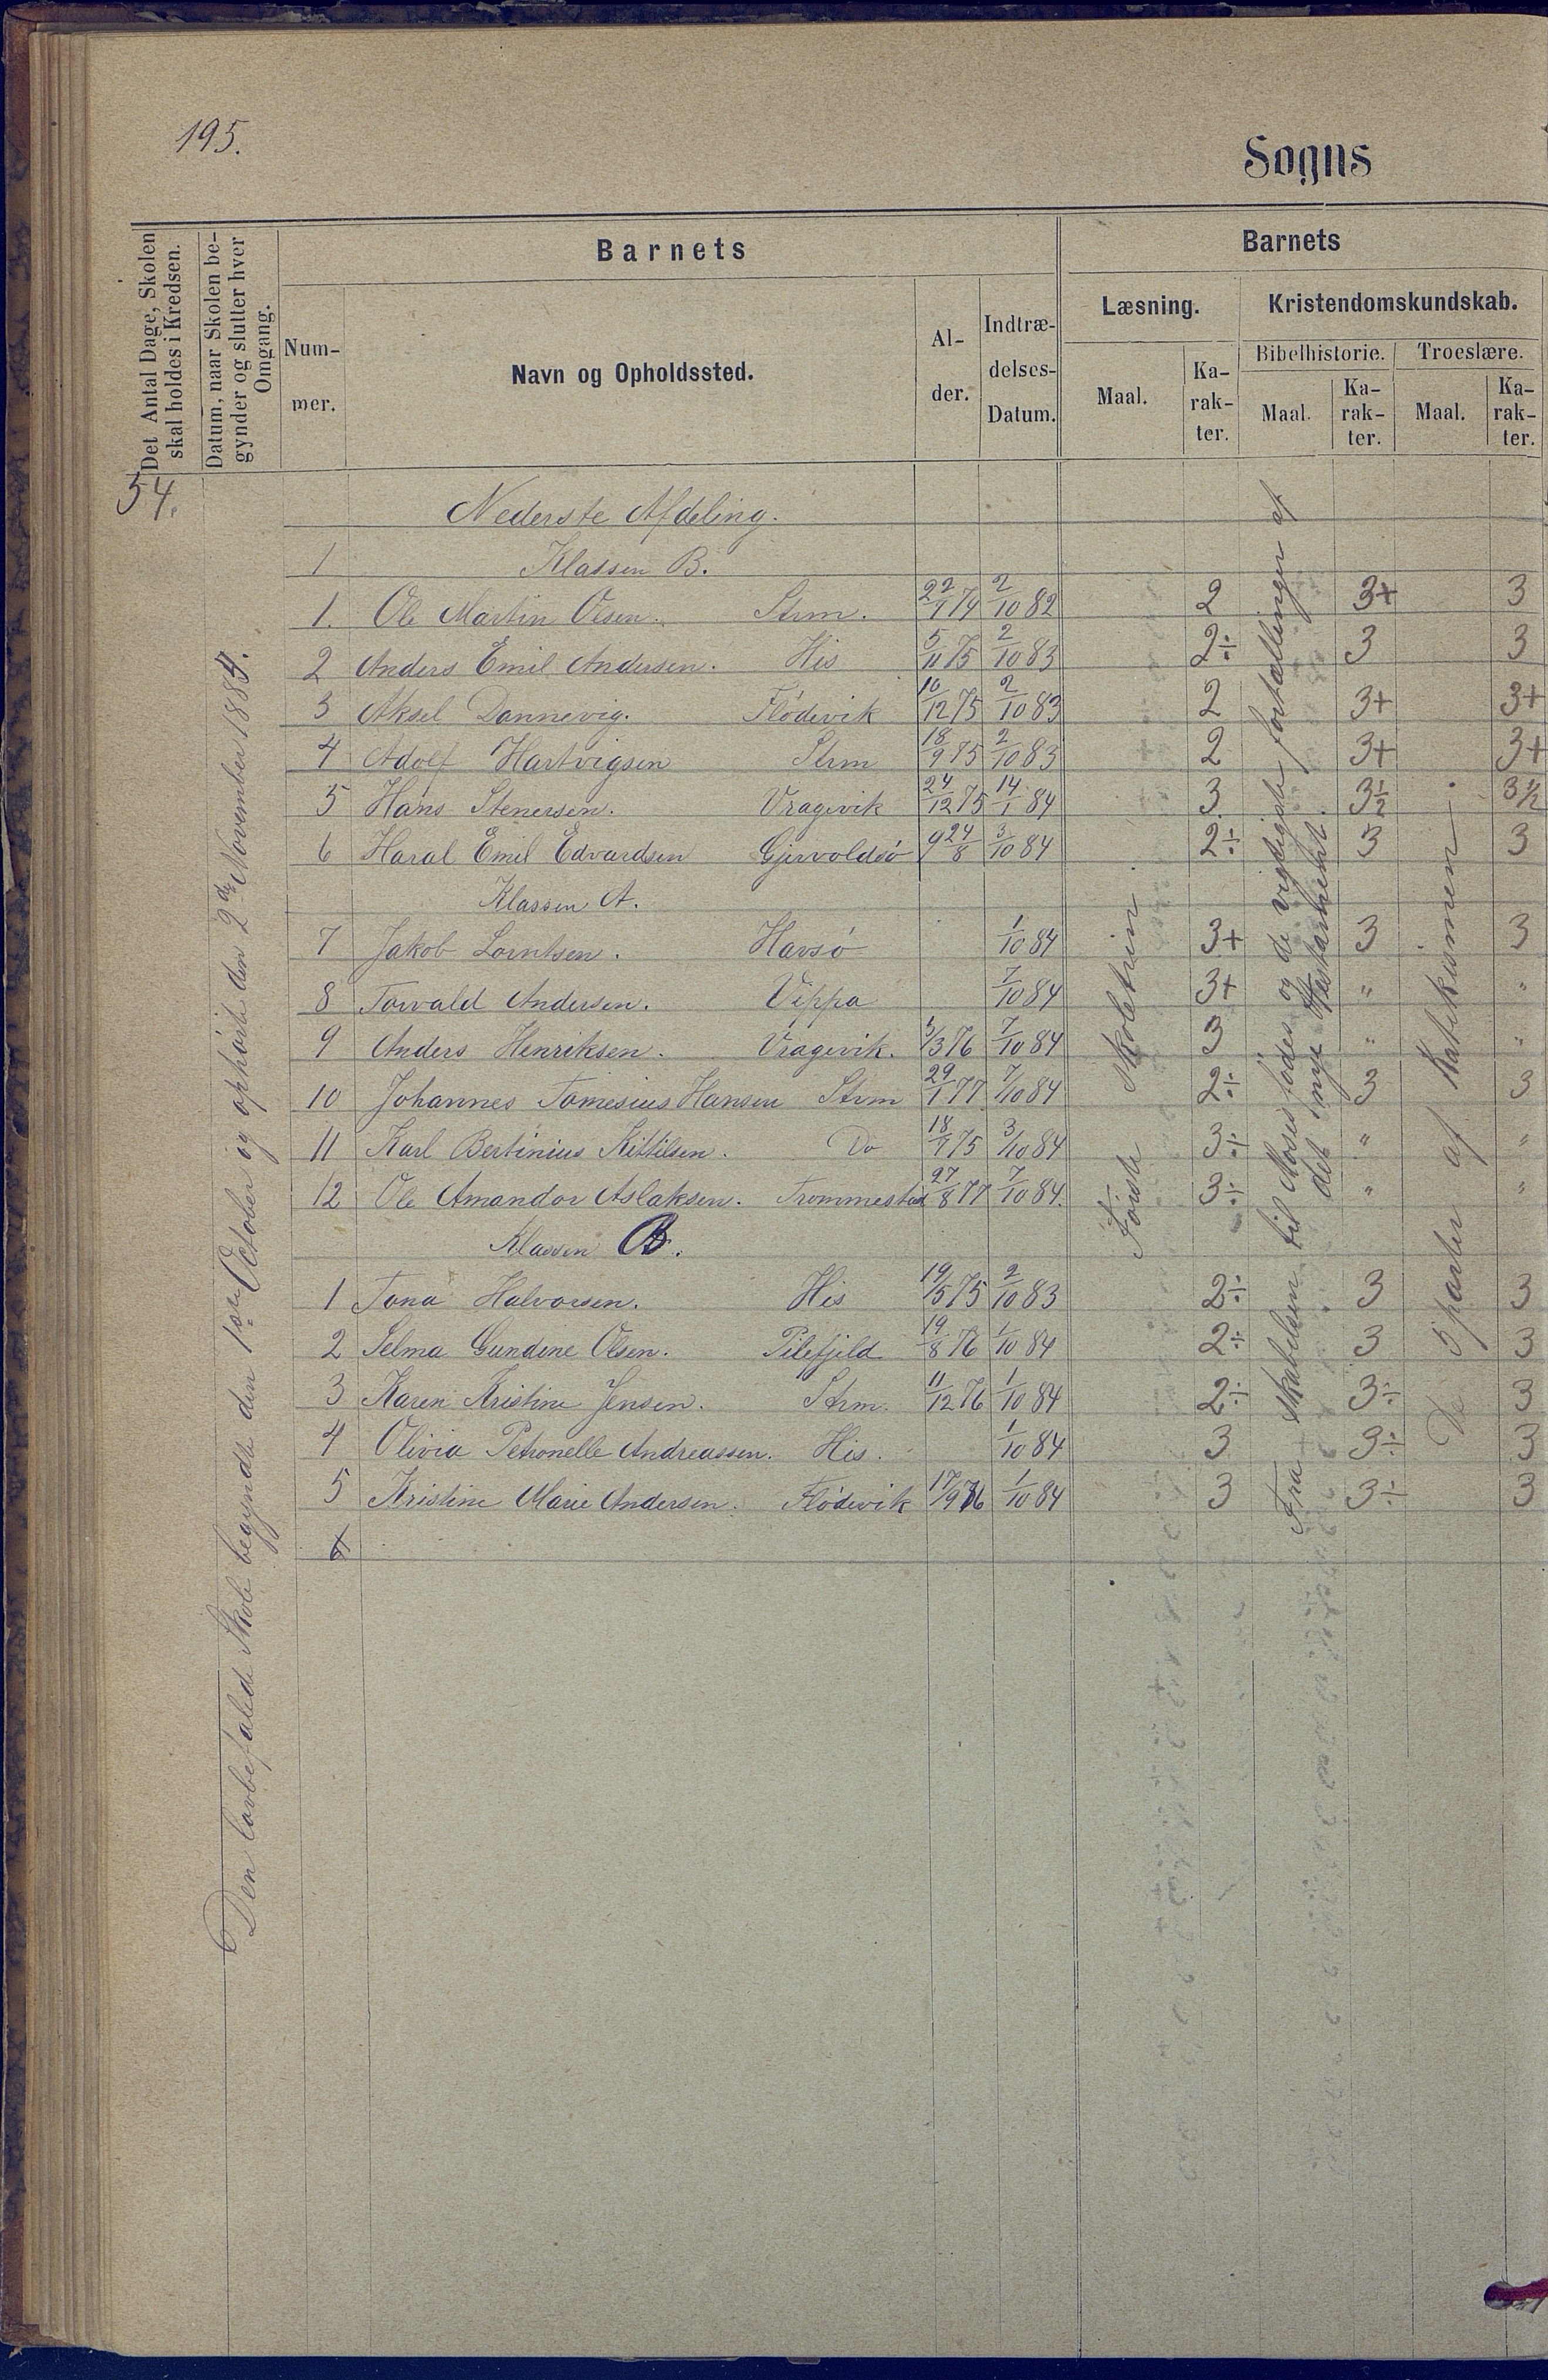 195.
Sogns
Det Antal Dage, Skolen
skal holdes i Kredsen.
Datum, naar Skolen be-
gynder og slutter hver
Omgang.
Barnets
Num-
mer.
Navn og Opholdssted.
Al-
der.
Indtræ-
delses-
Datum.
Barnets
Læsning.
Maal.
Ka-
rak-
ter.
Kristendomskundskab.
Bibelhistorie.
Maal.
Ka-
rak-
ter.
Troeslære.
Maal.
Ka-
rak-
ter.
54.
Den lovbefalede Skole begyndte den 1ste October og ophørte den 2de November 1884.
Nederste Afdeling.
1 Klassen B.
1. Ole Martin Olsen. Strm. 22/1 74 2/10 82 2 3+ 3
2 Anders Emil Andersen. His 5/11 75 2/10 83 2÷ 3 3
3 Aksel Dannevig. Flödevik 10/12 75 2/10 83 2 3+ 3+
4 Adolf Hartvigsen Strm 18/9 75 2/10 83 2 3+ 3+
5 Hans Stenersen. Vragevik 24/12 75 14/1 84 3 3½ 3½
6 Haral Emil Edvardsen Gjervoldsö 9 24/8 3/10 84 2÷ 3 3
Klassen A.
7 Jakob Lorntsen. Havsö 1/10 84 3+ 3 3
8 Torvald Andersen. Vippa 7/10 84 3+ " "
9 Anders Henriksen. Vragevik. 5/3 76 7/10 84 3 " "
10 Johannes Tomesius Hansen Strm 29/1 77 7/10 84 2÷ 3 3
11 Karl Bertinius Kittilsen. Do 18/7 75 3/10 84 3÷ " "
12 Ole Amandor Aslaksen. Trommestad 27/8 77 7/10 84. 3÷ " "
Klassen B.
1 Tona Halvorsen. His 14/5 75 2/10 83 2÷ 3 3
2 Selma Gundine Olsen. Pilefjeld 19/8 76 1/10 84 2÷ 3 3
3 Karen Kristine Jensen. Strm. 11/12 76 1/10 84 2÷ 3÷ 3
4 Olivia Petronelle Andreassen. His. 1/10 84 3 3÷ 3
5 Kristine Marie Andersen. Flödevik 17/9 76 1/10 84 3 3÷ 3
6
Første Skoletrin.
Fra Skabelsen til Moses födes og de vigtigste fortællinger af
det nye Testamente
De 5 parter af Katekismen